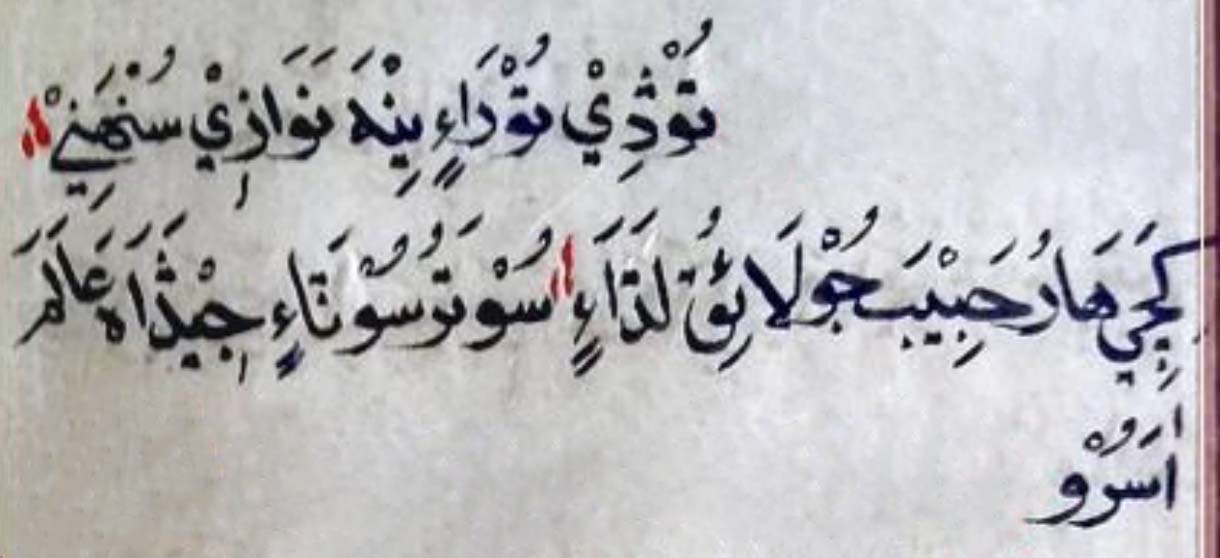 تُوْڎِيْ تُوْرَاءٍ بِنْهَ نَوَازِيْ سُنْهَنِيْ
کِجَيْ هَارُ حَبِيْبَ جُوْ لَائِقُ لَدَاءٍ سُوْ تَرُ سُوْ تَاءٍ جِيْڎَاهَ عَالَمَ
اَسَرُوْ